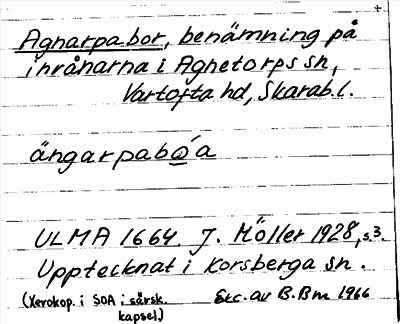 Agnarpabor, benämning på
inrånarna i Agnetorps sn,
Vartofta hd, Skarab. l.
ängarpabo̲´a
ULMA 1664. J. Möller 1928, s. 3.
Upptecknat i Korsberga sn.
(Xerokop. i SOA i särsk. kapsel.)
Exc. av B. Bm 1966